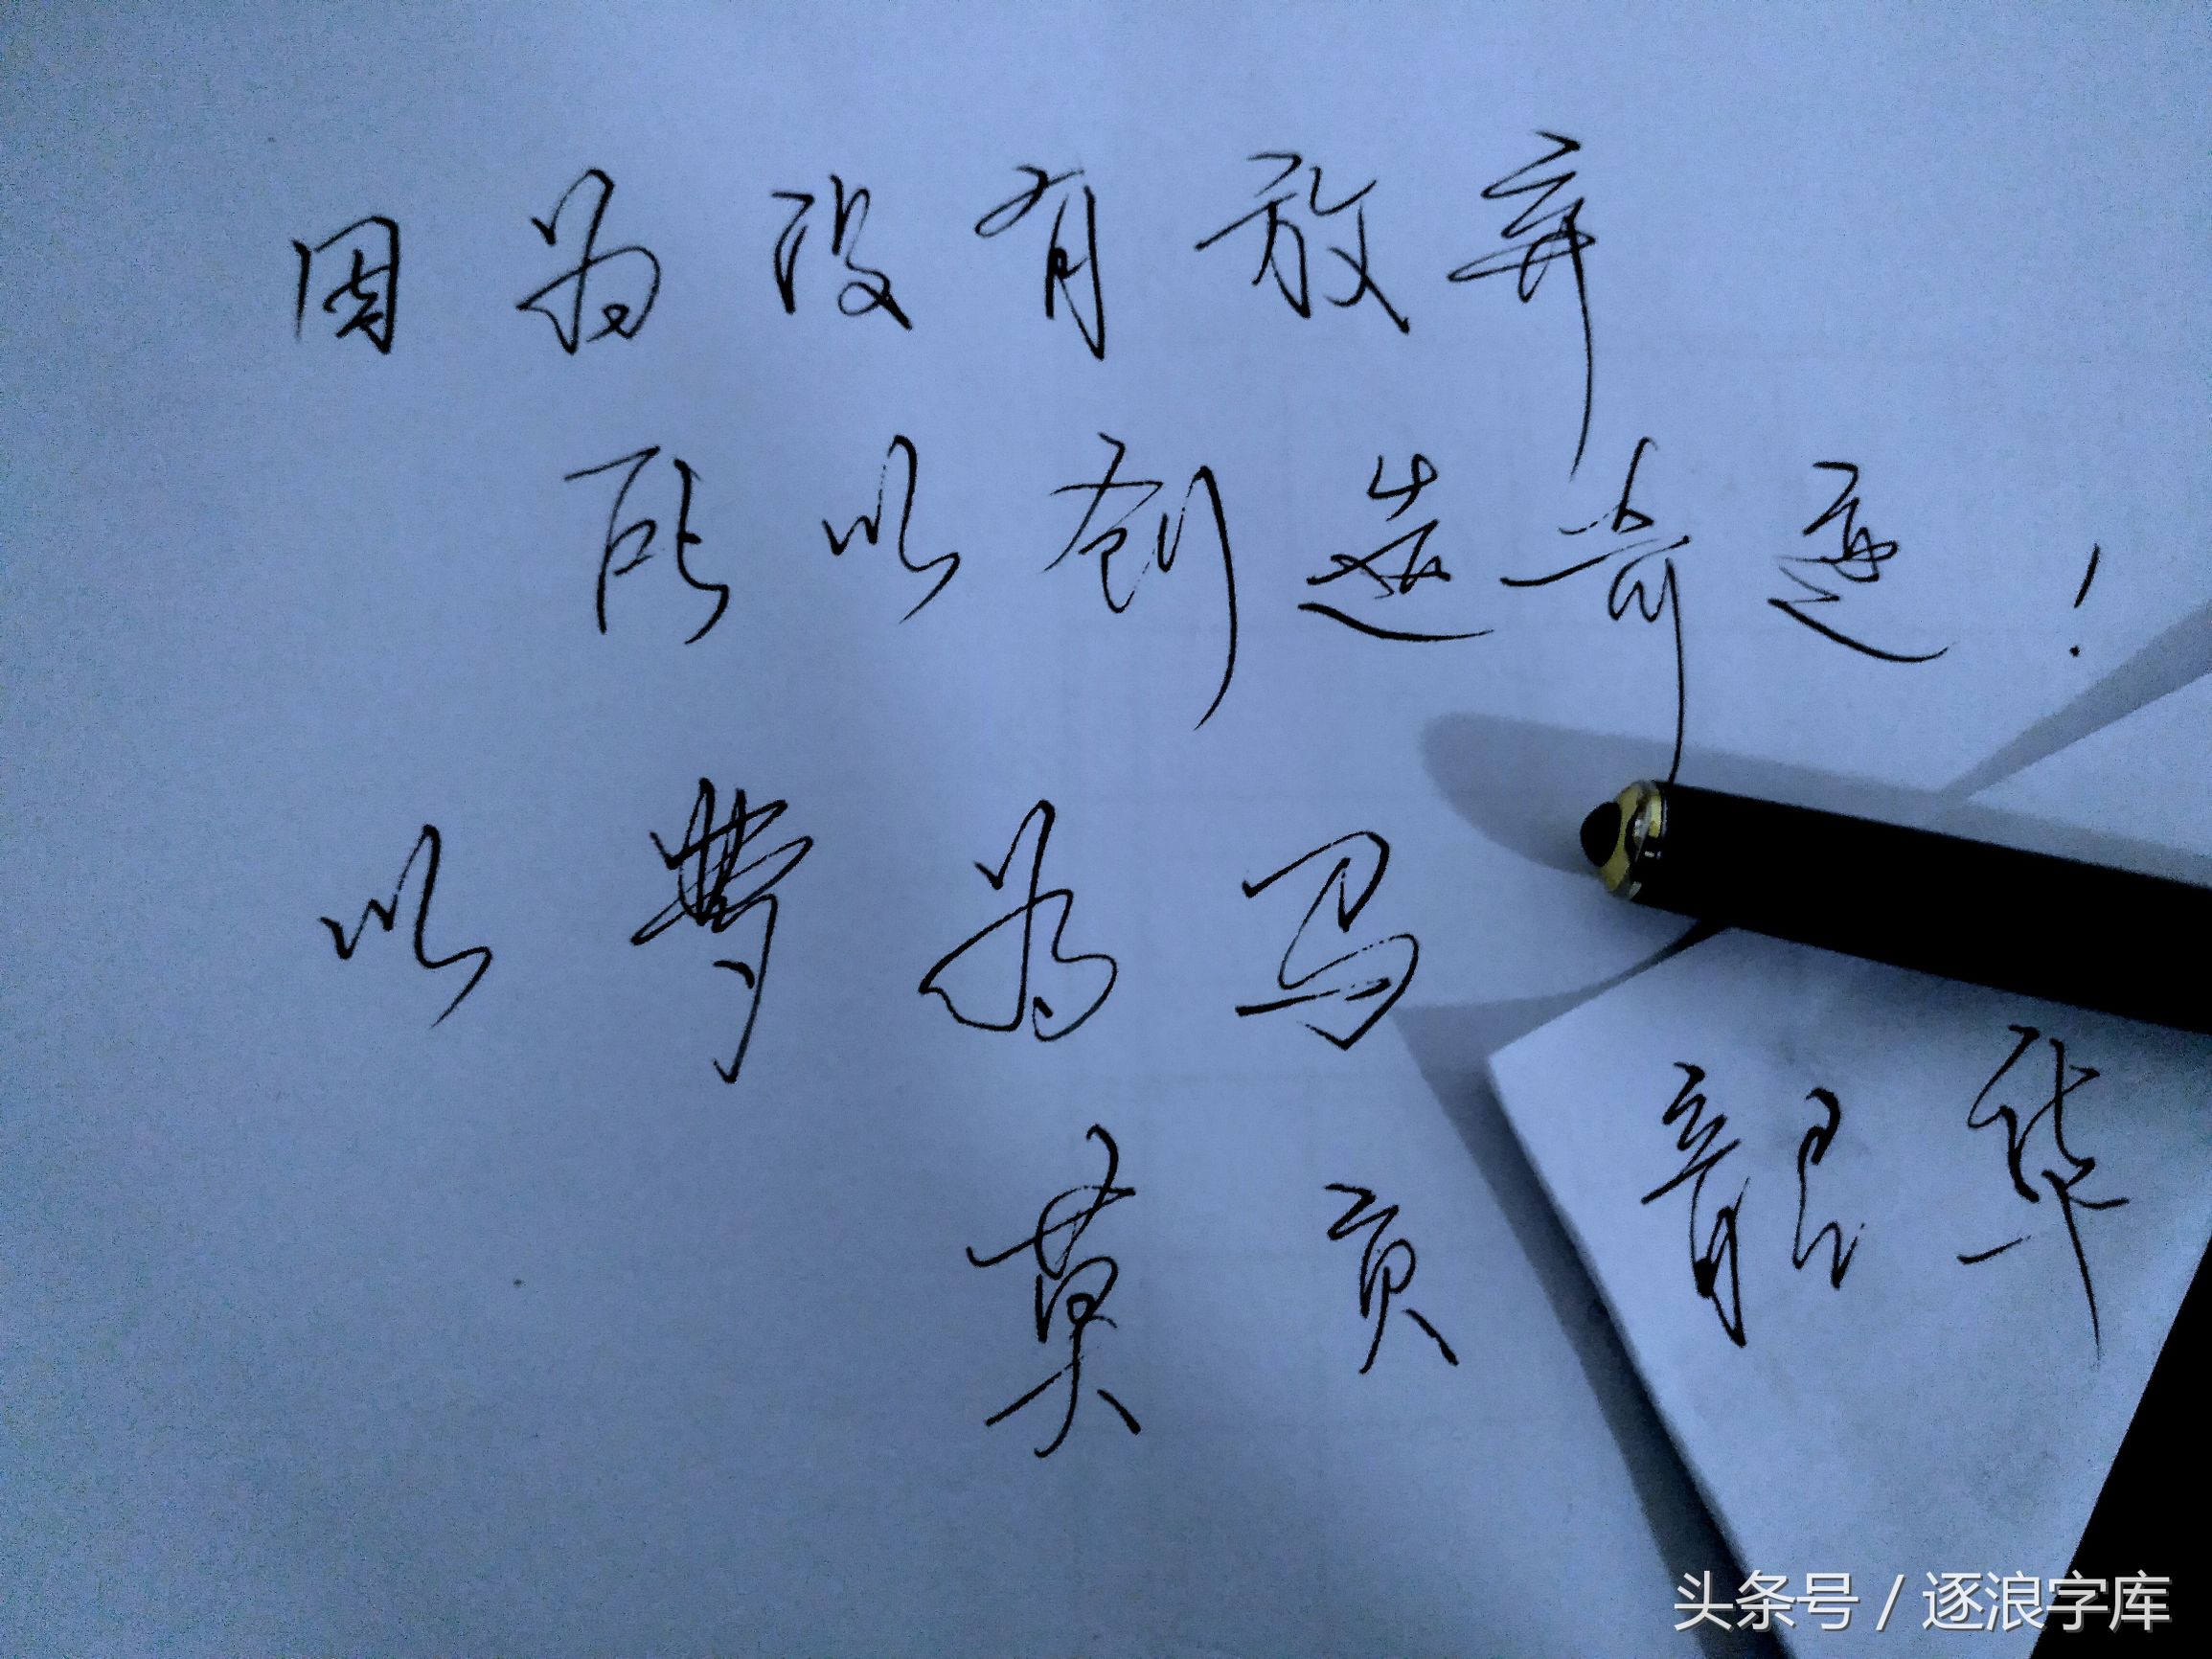 因为没有放弃
所以创造奇迹!
以梦为马
莫负韶华
头条号 / 逐浪字库